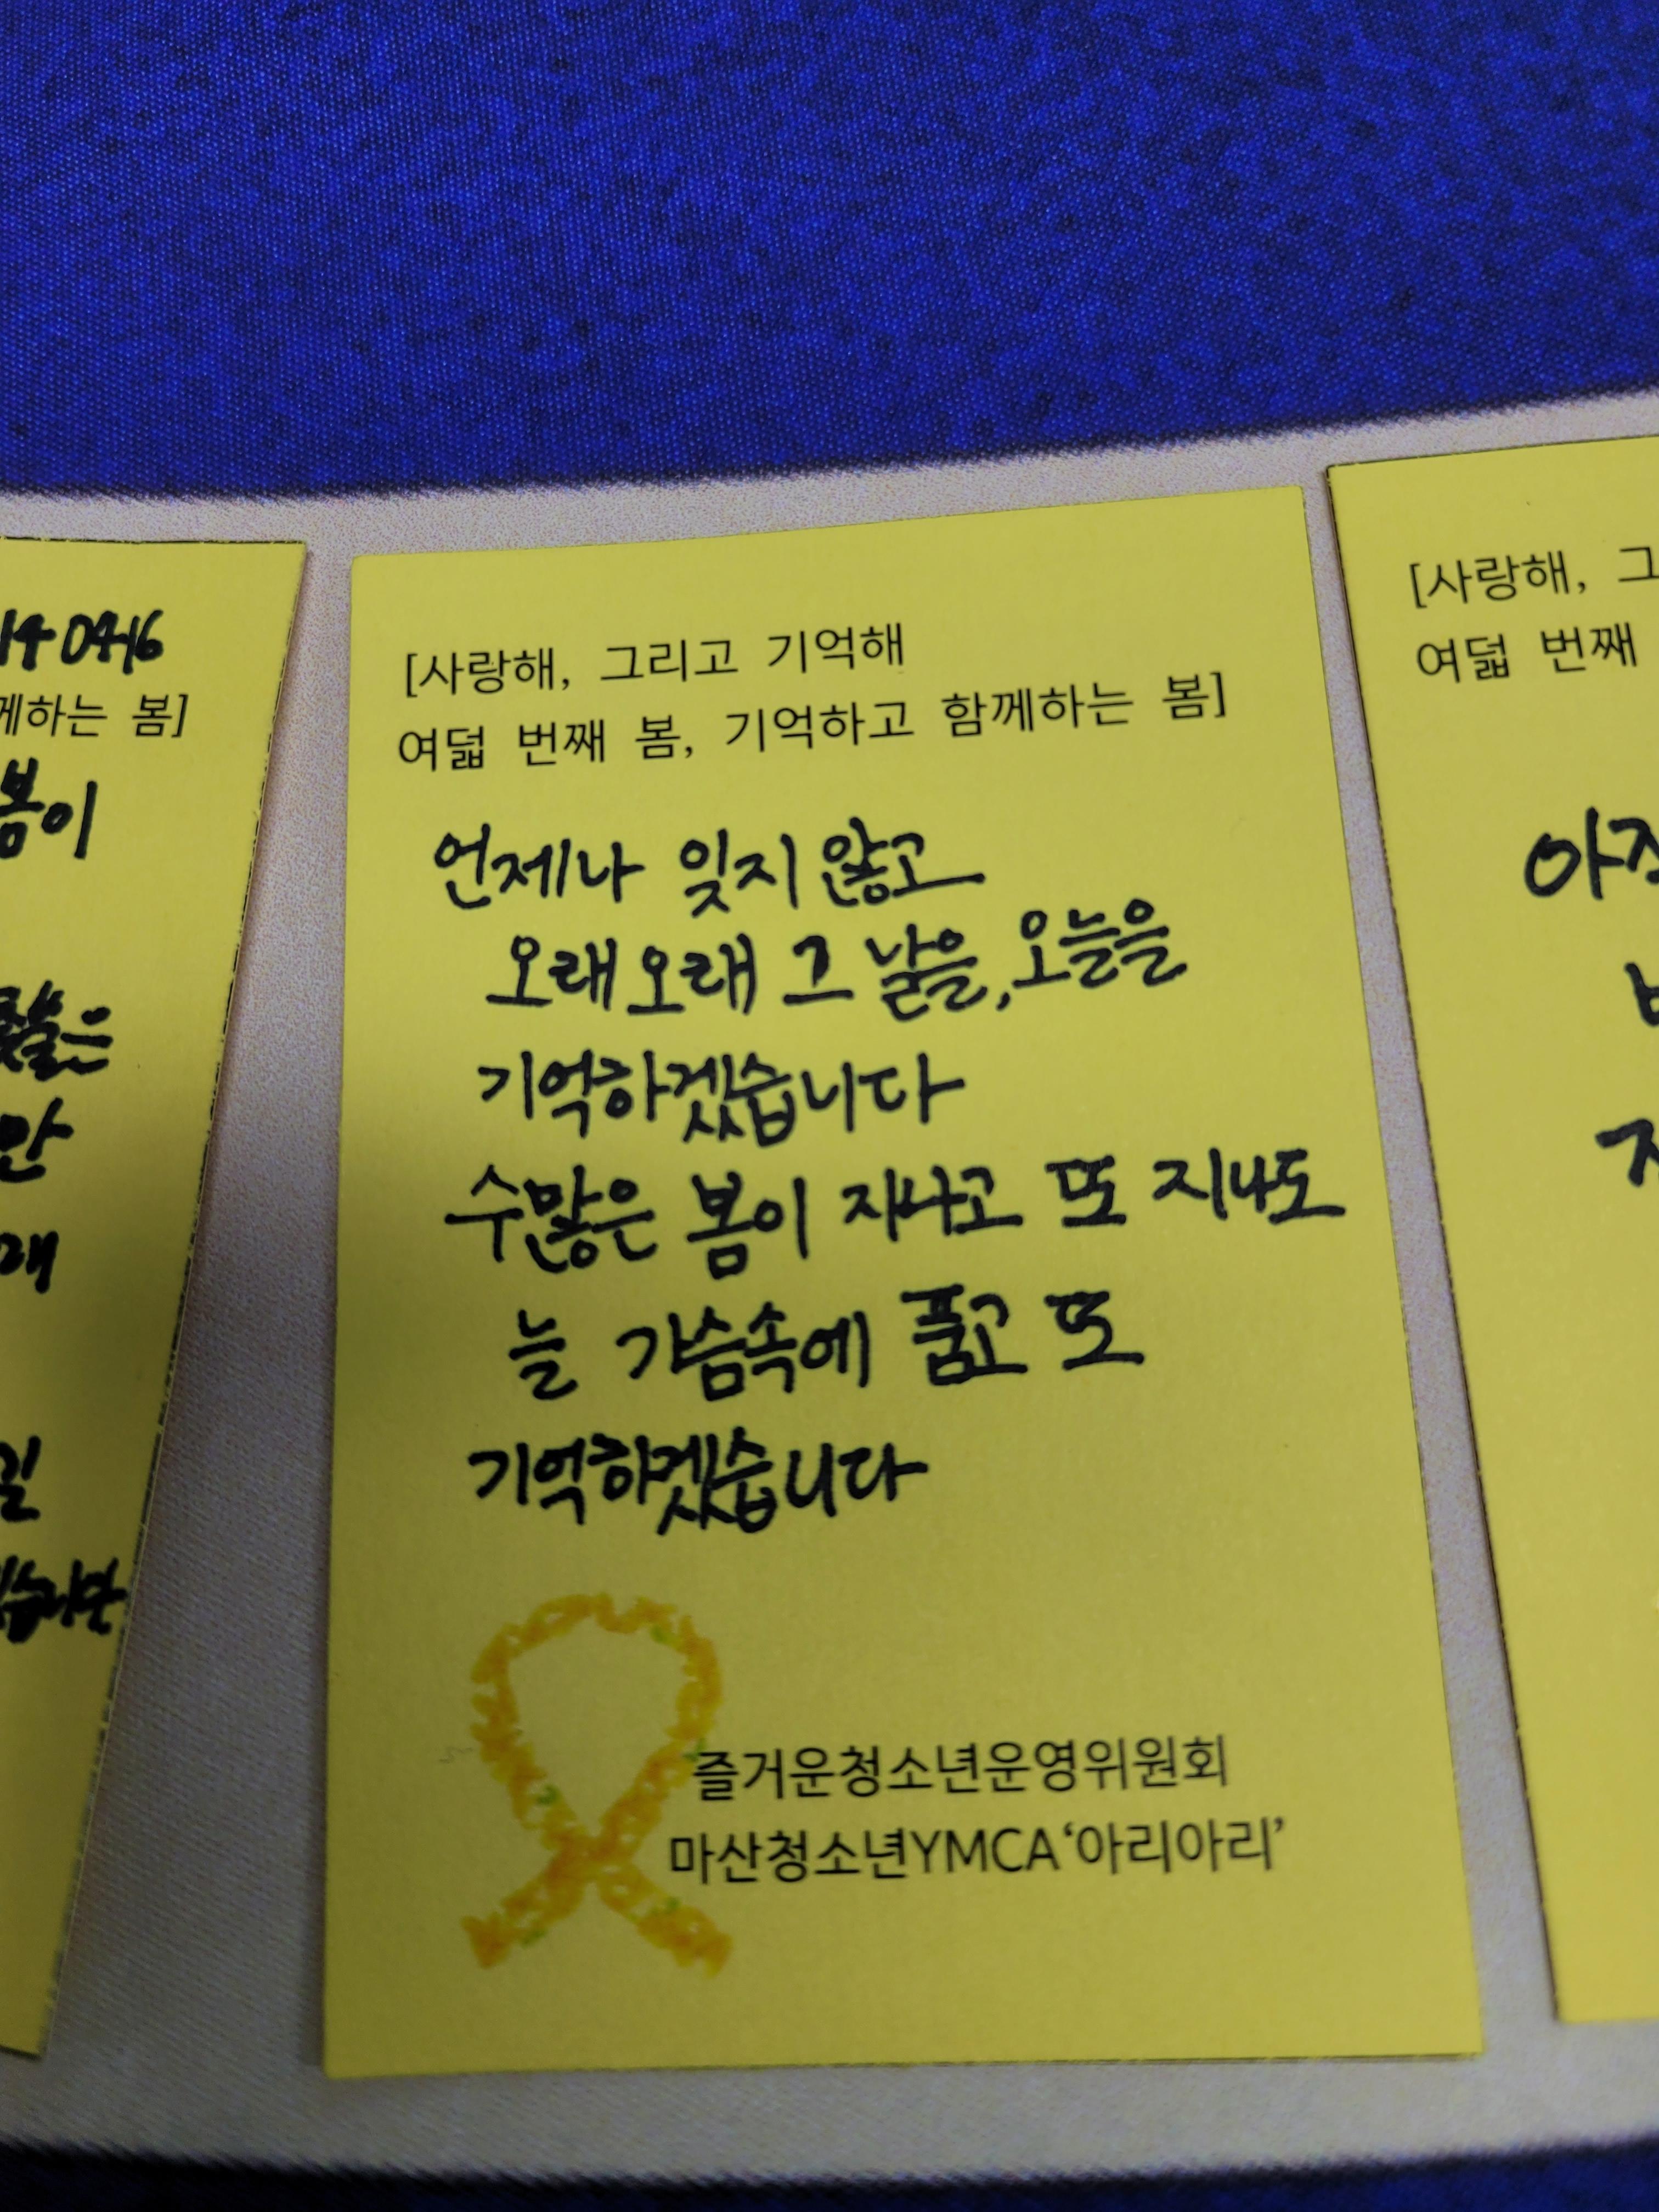 0416
께하는 봄]
봄이
은
안
길
[사랑해, 그리고 기억해
여덟 번째 봄, 기억하고 함께하는 봄]
언제나 잊지 않고
오래오래 그 날을, 오늘을
기억하겠습니다
수많은 봄이 지나고 또 지나도
늘 가슴속에 품고 또
기억하겠습니다
즐거운청소년운영위원회
마산청소년YMCA‘아리아리’
[사랑해, 그
여덟 번째